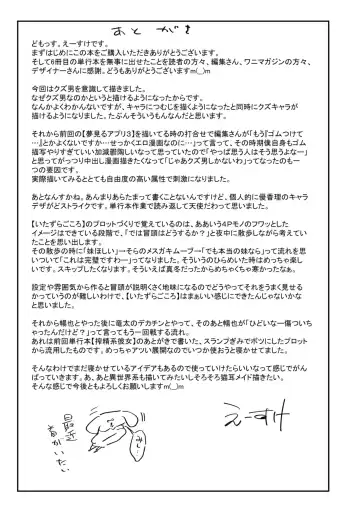 あとがき
どもっす。えーすけです。
まずはじめにこの本をご購入いただきありがとうございます。
そして6冊目の単行本を無事に出せたことを読者の方々、編集さん、ワニマガジンの方々、
デザイナーさんに感謝。どうもありがとうございますm(__)m
今回はクズ男を意識して描きました。
なぜクズ男なのかというと描けるようになったからです。
なんかよくわかんないですが、キャラにつむじを描くようになったと同時にクズキャラが
描けるようになりました。たぶんそういうもんなんだと思います。
それから前回の【夢見るアプリ3】を描いてる時の打合せで編集さんが「もう『ゴムつけて
…』とかよくないですか…せっかくエロ漫画なのに…」って言って、その時期僕自身もゴム
描写やりすぎていい加減鬱陶しいなって思っていたので「やっぱ思う人はそう思うよなー」
と思ってがっつり中出し漫画描きたくなって「じゃあクズ男しかないわ」ってなったのも一
つの要因です。
実際描いてみるととても自由度の高い属性で刺激になりました。
あとなんすかね。あんまりあらたまって書くことないんですけど、個人的に優香理のキャラ
デザがどストライクです。単行本作業で読み返して天使だわって思いました。
【いたずらごころ】のプロットづくりで覚えているのは、ああいう4Pモノのフワッとした
イメージはできている段階で、「では冒頭はどうするか?」と夜中に散歩しながら考えてい
たことを思い出します。
その散歩の時に「妹ほしい」→そらのメスガキムーブ→「でも本当の妹なら」って流れを思
いついて「これは完璧ですわー」ってなりました。そういうのひらめいた時はめっちゃ楽し
いです。スキップしたくなります。そういえば真冬だったからめちゃくちゃ寒かったなぁ。
設定や雰囲気から作ると冒頭が説明くさく地味になるのでどうやってそれをうまく見せる
かっていうのが難しいわけで、【いたずらごころ】はまぁいい感じにできたんじゃないかな
と思いました。
それから幡也とやった後に竜太のデカチンとやって、そのあと幡也が「ひどいな一傷ついち
ゃったんだけど?」って言ってもう一回戦する流れ。
あれは前回単行本【搾精系彼女】のあとがきで書いた、スランプぎみでボツにしたプロット
から流用したものです。めっちゃアツい展開なのでいつか使おうと寝かせてました。
そんなわけでまだ寝かせているアイデアもあるので使っていけたらいいなって感じでがん
ばっていきます。あ、あと異世界系も描いてみたいしそろそろ猫耳メイド描きたい。
そんな感じで今後ともよろしくお願いしますm(__)m
えーすけ
最近
首がいたい